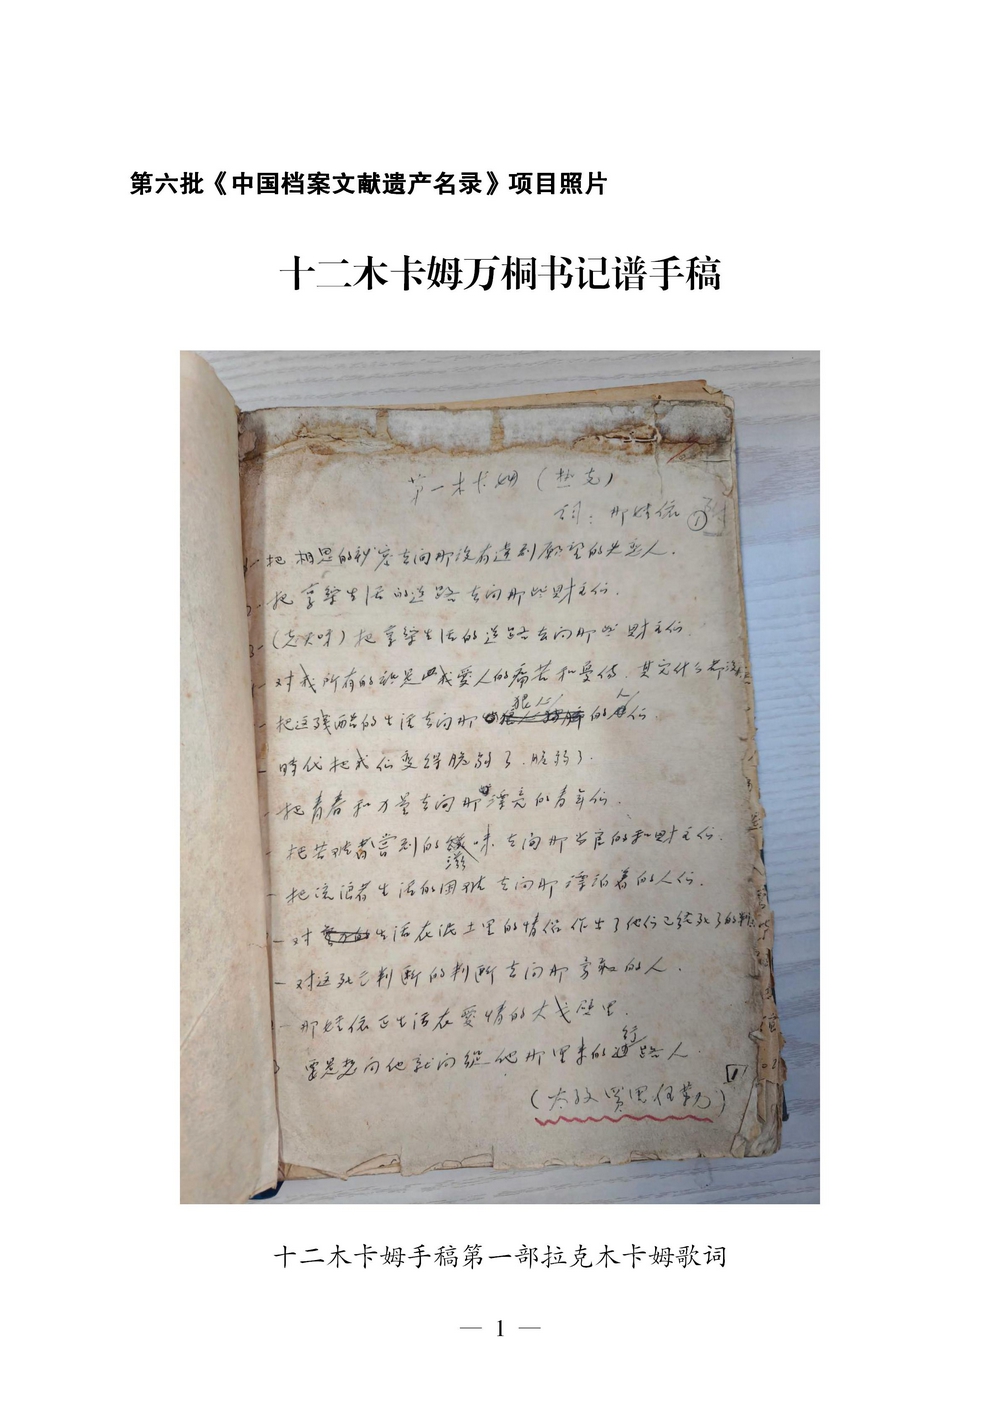 第六批《中国档案文献遗产名录》项目照片
十二木卡姆万桐书记谱手稿
第一木卡姆（拉克）
词：那娃依 ①
把相思的秘密去问那没有达到愿望的失恋人．
把享乐生活的道路去问那些财主们．
把享乐生活的道路去问那些财主们．
对我所有的就是我爱人的痛苦和忧伤，其它什么都没
把这残酷的生活去问那狠心的人们．
时代把我们变得脆弱了．脆弱了．
把青春和力量去问那漂亮的青年们．
把苦都尝到的滋味去问那当官的和财主们．
把流浪者生活的困难去问那漂泊着的人们．
对生活在泥土里的情侣作出了他们已经死了的判
对这死亡判断的判断去问那的人．
那娃依正生活在爱情的大戈壁里．
要是想问他就问从他那里来的行路人．
十二木卡姆手稿第一部拉克木卡姆歌词
— 1 —